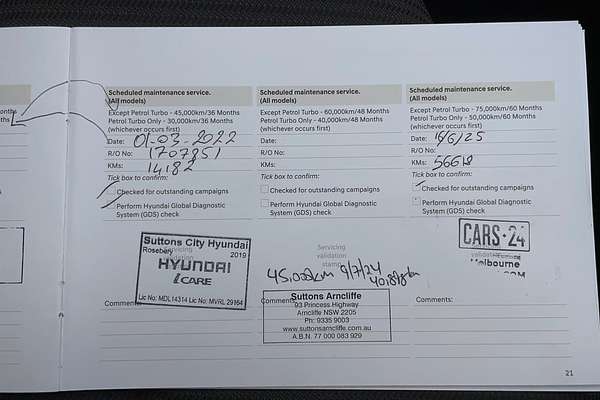 onths
ths
Scheduled maintenance service.
(All models)
Except Petrol Turbo - 45,000km/36 Months
Petrol Turbo Only - 30,000km/36 Months
(whichever occurs first)
Date: 01-03-2022
R/O No: 1707851
KMs: 14182
Tick box to confirm:
Checked for outstanding campaigns
Perform Hyundai Global Diagnostic
System (GDS) check
Servicing
Suttons City Hyundai
Rosebery 2019
HYUNDAI
iCARE
Lic No: MDL14314 Lic No: MVRL 29164
Comments:
Scheduled maintenance service.
(All models)
Except Petrol Turbo - 60,000km/48 Months
Petrol Turbo Only - 40,000km/48 Months
(whichever occurs first)
Date:
R/O No:
KMs:
Tick box to confirm:
Checked for outstanding campaigns
Perform Hyundai Global Diagnostic
System (GDS) check
Servicing
validation
stamp
45,000km 9/7/24
Comments:
Suttons Arncliffe
93 Princess Highway
Arncliffe NSW 2205
Ph: 9335 9003
www.suttonsarncliffe.com.au
A.B.N. 77 000 083 929
Scheduled maintenance service.
(All models)
Except Petrol Turbo - 75,000km/60 Months
Petrol Turbo Only - 50,000km/60 Months
(whichever occurs first)
Date: 16/6/25
R/O No:
KMs:
Tick box to confirm:
Checked for outstanding campaigns
Perform Hyundai Global Diagnostic
System (GDS) check
CARS·24
Melbourne
Comments:
21